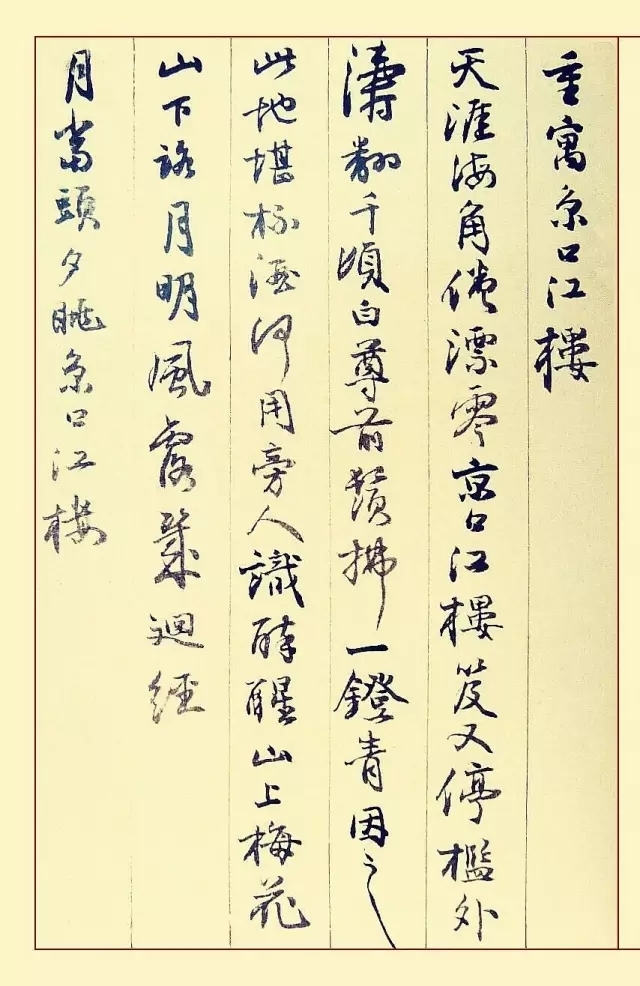 重寓京口江樓
天涯海角倦漂零京口江樓笈又停檻外
濤翻千頃白尊前鬢拂一鐙青因之
此地堪杯酒何用旁人識醉醒山上梅花
山下路月明風露幾迴經
月當頭夕眺京口江樓